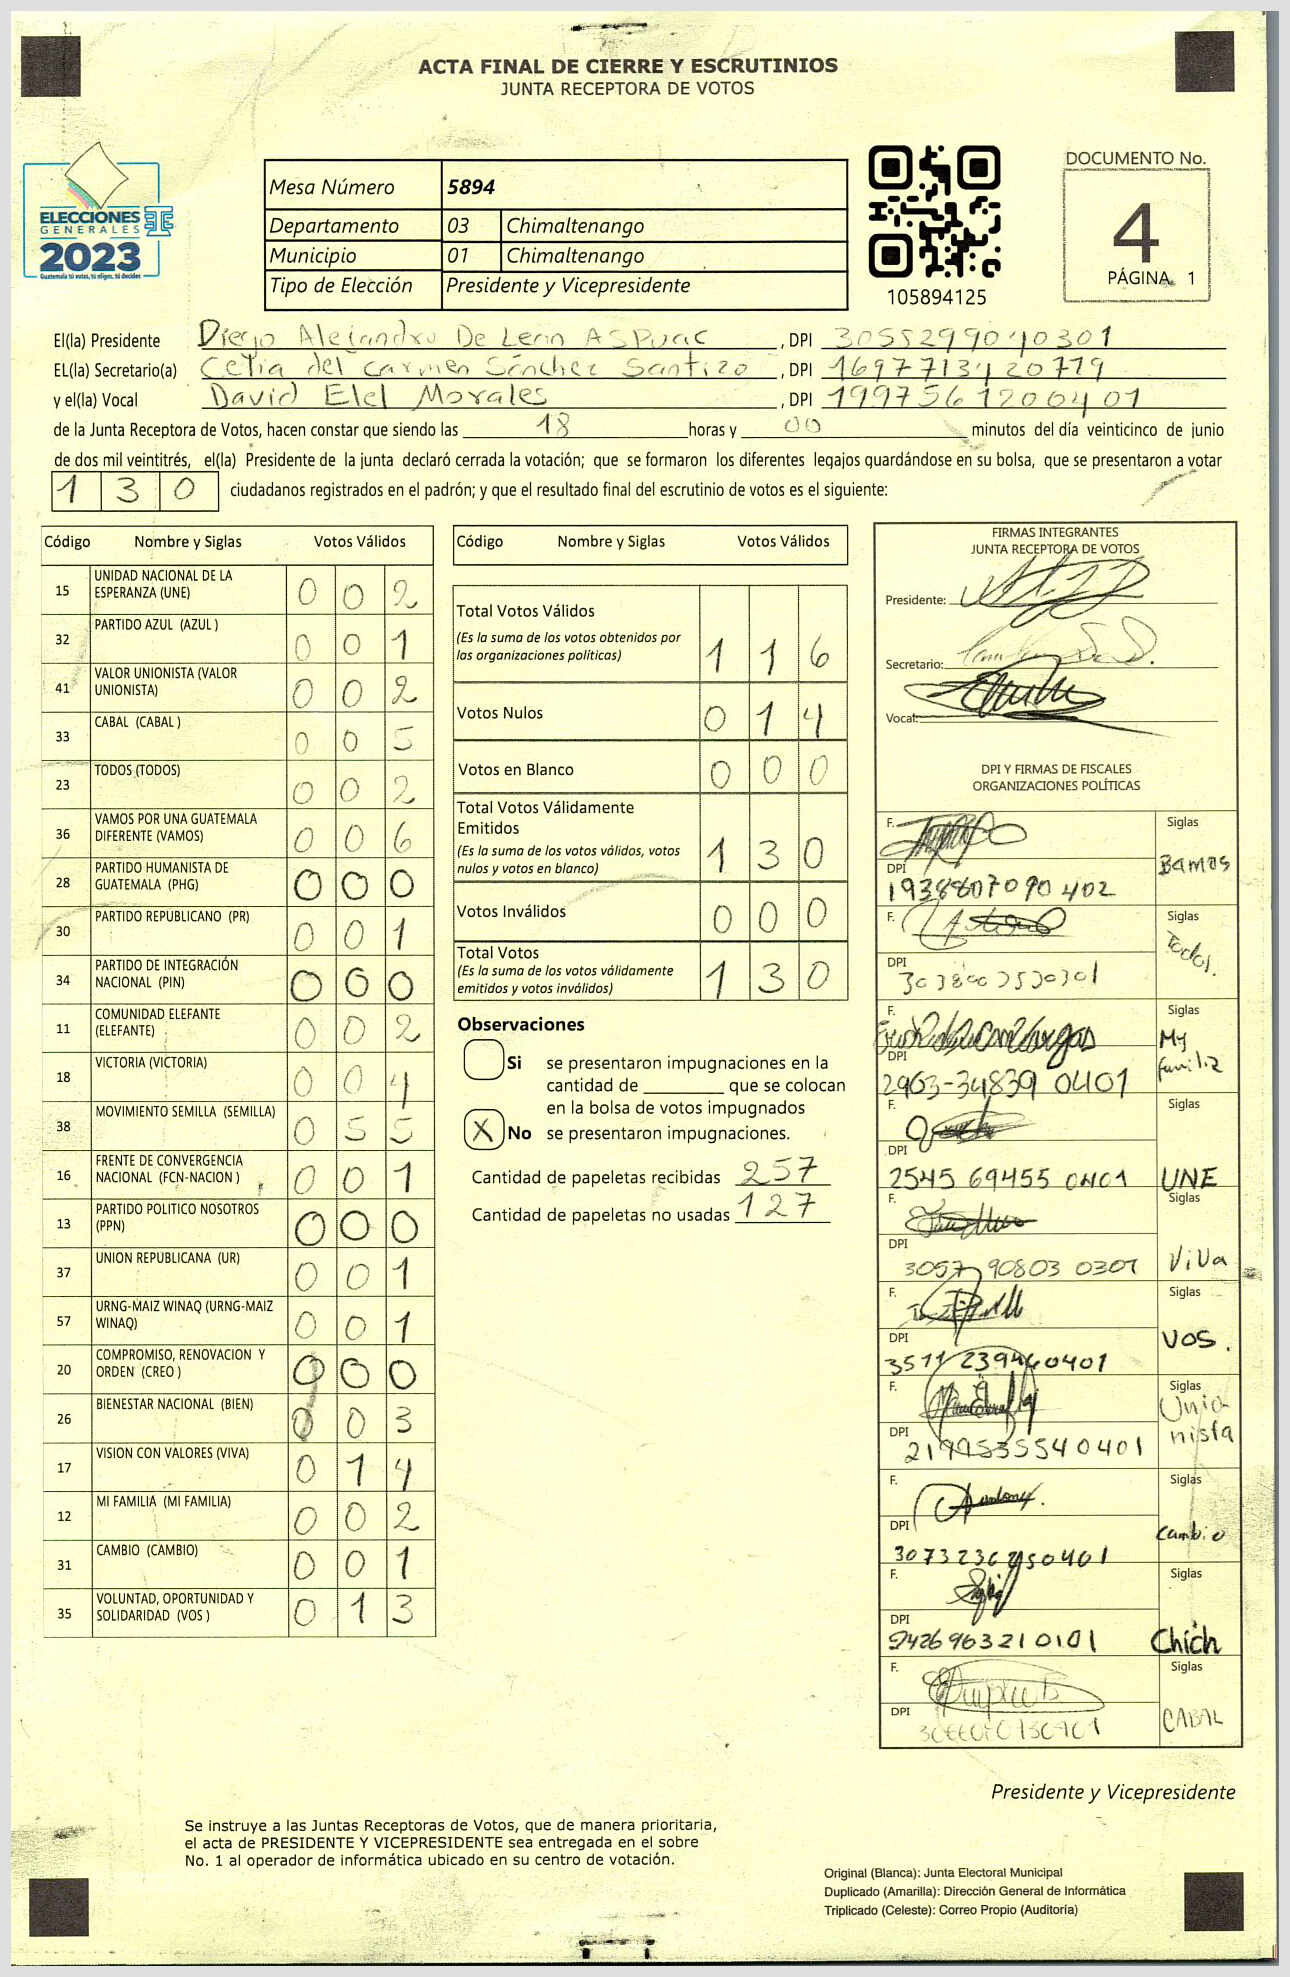 ACTA FINAL DE CIERRE Y ESCRUTINIOS
JUNTA RECEPTORA DE VOTOS
ELECCIONES
GENERALES
2023
Guatemala tú votas, tú eliges, tú decides
Mesa Número 5894
Departamento 03 Chimaltenango
Municipio 01 Chimaltenango
Tipo de Elección Presidente y Vicepresidente
105894125
DOCUMENTO No.
4
PÁGINA 1
El(la) Presidente Diego Alejandro De Leon ASPuac, DPI 3055299040301
EL(la) Secretario(a) Celia del carmen Sánchez Santizo, DPI 1697713420779
y el(la) Vocal David Elel Morales, DPI 1997561200401
de la Junta Receptora de Votos, hacen constar que siendo las 18 horas y 00 minutos del día veinticinco de junio
de dos mil veintitrés, el(la) Presidente de la junta declaró cerrada la votación; que se formaron los diferentes legajos guardándose en su bolsa, que se presentaron a votar
130 ciudadanos registrados en el padrón; y que el resultado final del escrutinio de votos es el siguiente:
Código Nombre y Siglas Votos Válidos
15 UNIDAD NACIONAL DE LA ESPERANZA (UNE) 002
32 PARTIDO AZUL (AZUL ) 001
41 VALOR UNIONISTA (VALOR UNIONISTA) 002
33 CABAL (CABAL ) 005
23 TODOS (TODOS) 002
36 VAMOS POR UNA GUATEMALA DIFERENTE (VAMOS) 006
28 PARTIDO HUMANISTA DE GUATEMALA (PHG) 000
30 PARTIDO REPUBLICANO (PR) 001
34 PARTIDO DE INTEGRACIÓN NACIONAL (PIN) 000
11 COMUNIDAD ELEFANTE (ELEFANTE) 002
18 VICTORIA (VICTORIA) 004
38 MOVIMIENTO SEMILLA (SEMILLA) 055
16 FRENTE DE CONVERGENCIA NACIONAL (FCN-NACION ) 001
13 PARTIDO POLITICO NOSOTROS (PPN) 000
37 UNION REPUBLICANA (UR) 001
57 URNG-MAIZ WINAQ (URNG-MAIZ WINAQ) 001
20 COMPROMISO, RENOVACION Y ORDEN (CREO ) 000
26 BIENESTAR NACIONAL (BIEN) 003
17 VISION CON VALORES (VIVA) 014
12 MI FAMILIA (MI FAMILIA) 002
31 CAMBIO (CAMBIO) 001
35 VOLUNTAD, OPORTUNIDAD Y SOLIDARIDAD (VOS ) 013
Código Nombre y Siglas Votos Válidos
Total Votos Válidos
(Es la suma de los votos obtenidos por
las organizaciones políticas) 116
Votos Nulos 014
Votos en Blanco 000
Total Votos Válidamente
Emitidos
(Es la suma de los votos válidos, votos
nulos y votos en blanco) 130
Votos Inválidos 000
Total Votos
(Es la suma de los votos válidamente
emitidos y votos inválidos) 130
Observaciones
Si se presentaron impugnaciones en la
cantidad de ________ que se colocan
en la bolsa de votos impugnados
X No se presentaron impugnaciones.
Cantidad de papeletas recibidas 257
Cantidad de papeletas no usadas 127
FIRMAS INTEGRANTES
JUNTA RECEPTORA DE VOTOS
Presidente:
Secretario:
Vocal:
DPI Y FIRMAS DE FISCALES
ORGANIZACIONES POLÍTICAS
F. Siglas
Bamos
DPI
1938807090402
F. Siglas
Todos.
DPI
F. Siglas
My
familia
DPI
2903-34839 0401
F. Siglas
DPI
2545 69455 0401 UNE
F. Siglas
DPI
3057 90803 0301 ViVa
F. Siglas
VOS.
DPI
3511 239460401
F. Siglas
Unio
nista
DPI
2199535540401
F. Siglas
DPI
Cambio
F. Siglas
DPI
2426963210101 Chich
F. Siglas
DPI
CABAL
Presidente y Vicepresidente
Se instruye a las Juntas Receptoras de Votos, que de manera prioritaria,
el acta de PRESIDENTE Y VICEPRESIDENTE sea entregada en el sobre
No. 1 al operador de informática ubicado en su centro de votación.
Original (Blanca): Junta Electoral Municipal
Duplicado (Amarilla): Dirección General de Informática
Triplicado (Celeste): Correo Propio (Auditoría)